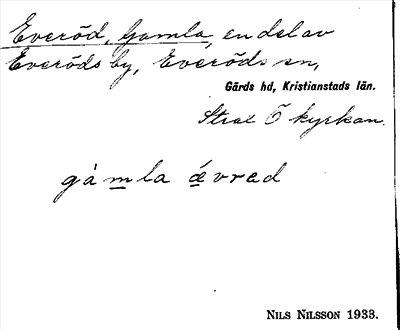 Everöd, Gamla, en del av
Everöds by, Everöds sn,
Gärds hd, Kristianstads län.
Strax Ö kyrkan.
gàmla ǽvrad
NILS NILSSON 1933.